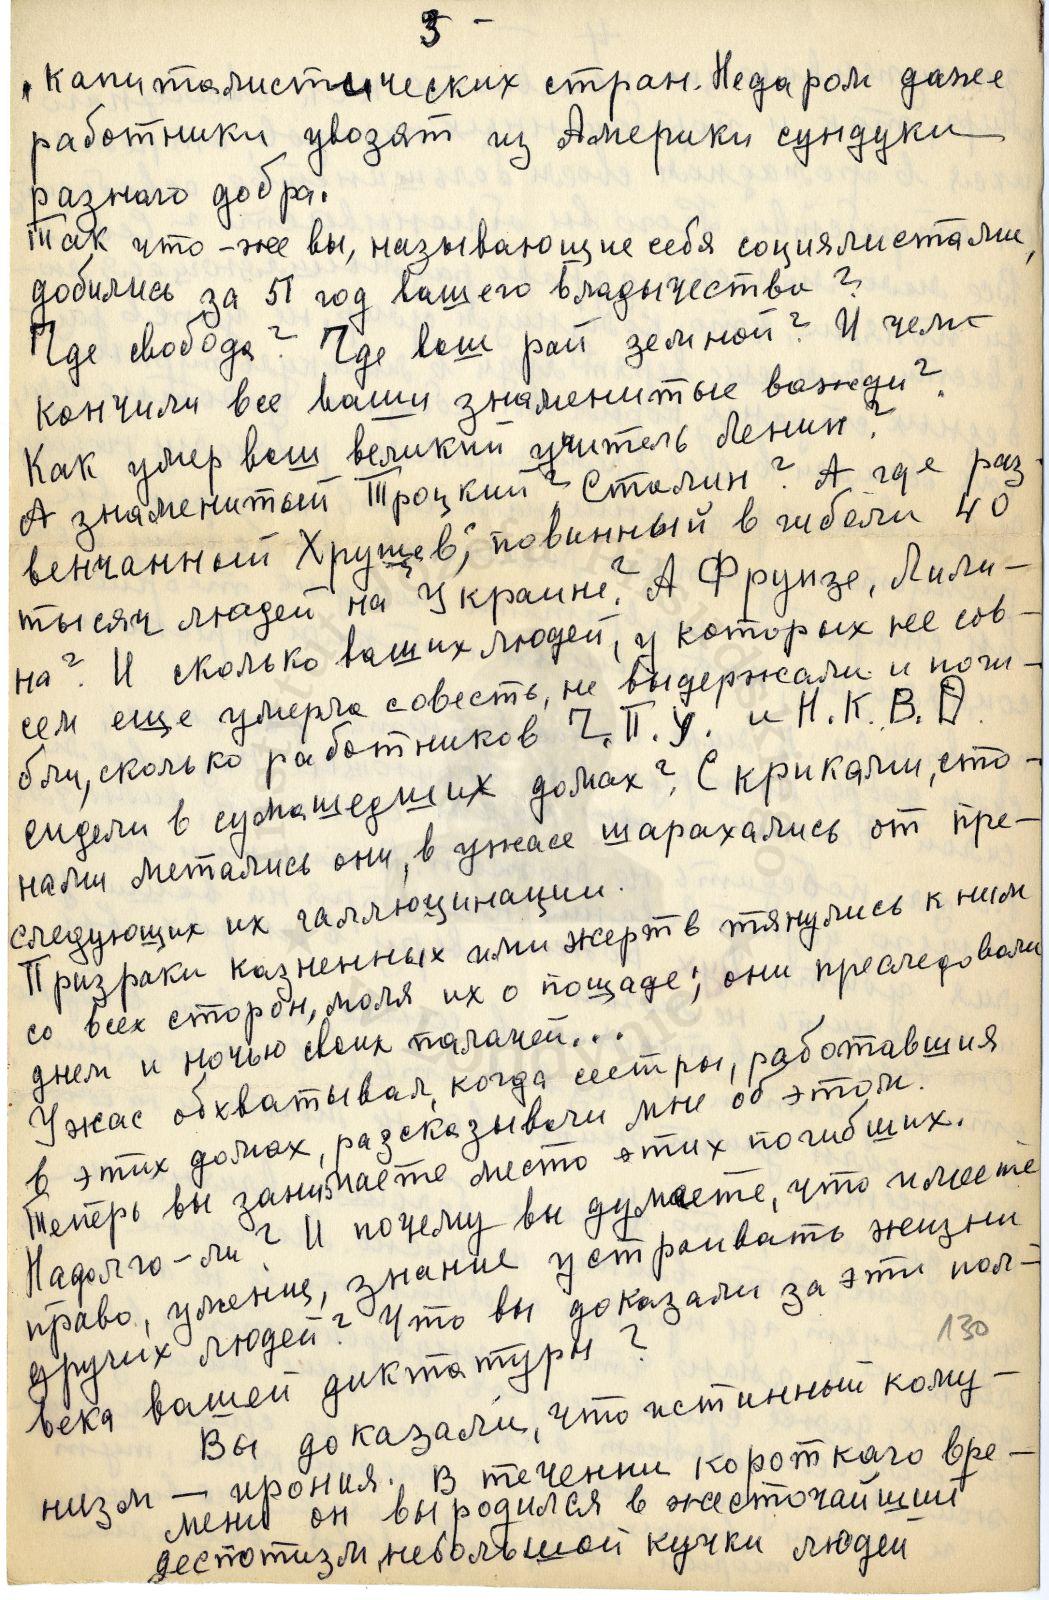 3 -
капиталистических стран. Недаром даже
работники увозят из Америки сундуки
разнаго добра.
Так что-же вы, называющие себя социялистами,
добились за 51 год вашего владычества?
Где свобода? Где ваш рай земной? И чем
кончили все ваши знаменитые вожди?
Как умер ваш великий учитель Ленин?
А знаменитый Троцкий? Сталин? А где раз-
венчанный Хрущев, повинный в гибели 40
тысяч людей на Украине? А Фрунзе, Лили-
на? И сколько ваших людей, у которых не сов-
сем еще умерла совесть, не выдержали и поги-
бли, сколько работников Г.П.У. и Н.К.В.D.
сидели в сумашедших домах? С криками, сто-
нами метались они, в ужасе шарахались от пре-
следующих их галлюцинации.
Призраки казненных ими жертв тянулись к ним
со всех сторон, моля их о пощаде; они преследовали
днем и ночью своих палачей...
Ужас обхватывал, когда сестры, работавшия
в этих домах, разсказывали мне об этом.
Теперь вы занимаете место этих погибших.
Надолго-ли? И почему вы думаете, что имеете
право, умение, знание устраивать жизни
других людей? Что вы доказали за эти пол-
века вашей диктатуры?
130
Вы доказали, что истинный кому-
низм — ирония. В течении короткаго вре-
мени он выродился в жесточайший
деспотизм небольшой кучки людей